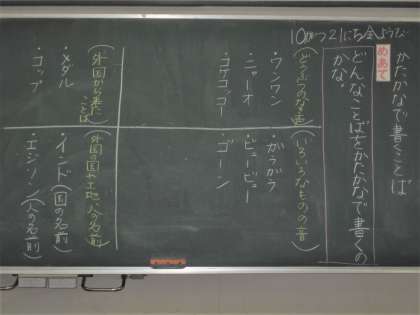 10がつ21にち金ようび
かたかなで書くことば
めあて
どんなことばをかたかなで書くの
かな。
(どうぶつのなき声)
・ワンワン
・ニャーオ
・コケコッコー
(いろいろなものの音)
・ガラガラ
・ビュービュー
・ゴーン
(外国から来た
ことば)
・メダル
・コップ
(外国の国や土地、人の名前)
・インド(国の名前)
・エジソン(人の名前)